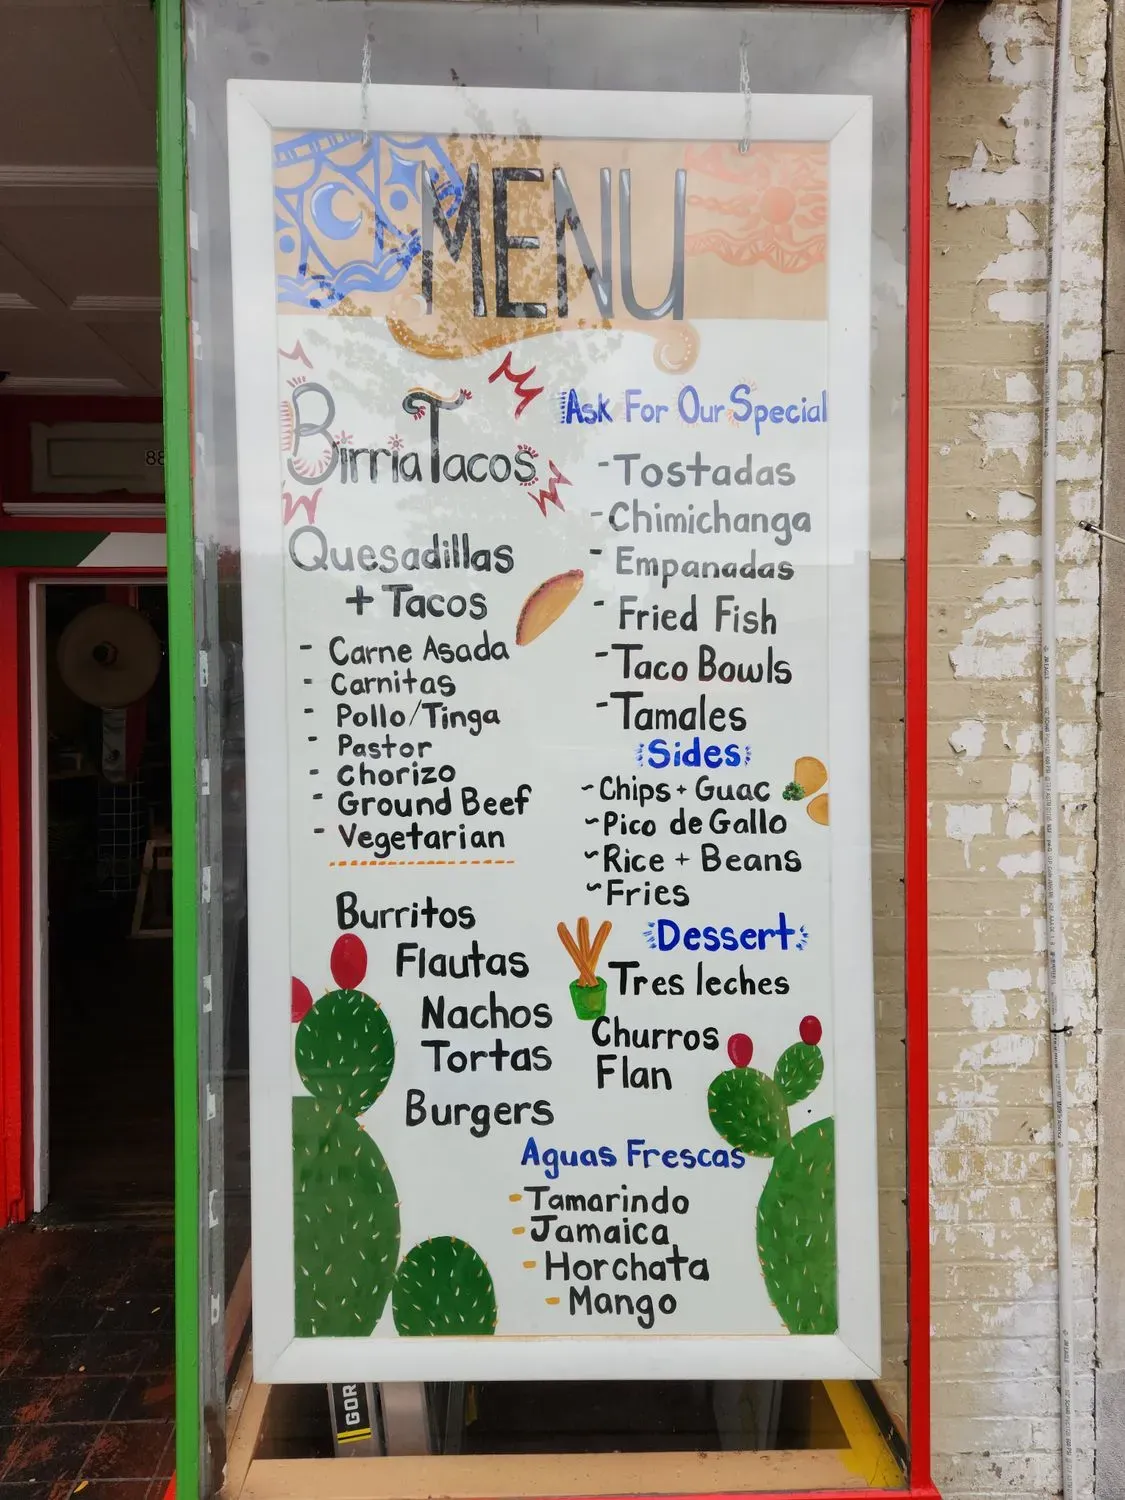 MENU
Birria Tacos
Quesadillas
+ Tacos
- Carne Asada
- Carnitas
- Pollo/Tinga
- Pastor
- Chorizo
- Ground Beef
- Vegetarian
Burritos
Flautas
Nachos
Tortas
Burgers
Ask For Our Special
- Tostadas
- Chimichanga
- Empanadas
- Fried Fish
- Taco Bowls
- Tamales
Sides
~ Chips + Guac
~ Pico de Gallo
~ Rice + Beans
~ Fries
Dessert
Tres leches
Churros
Flan
Aguas Frescas
- Tamarindo
- Jamaica
- Horchata
- Mango
88
GOR